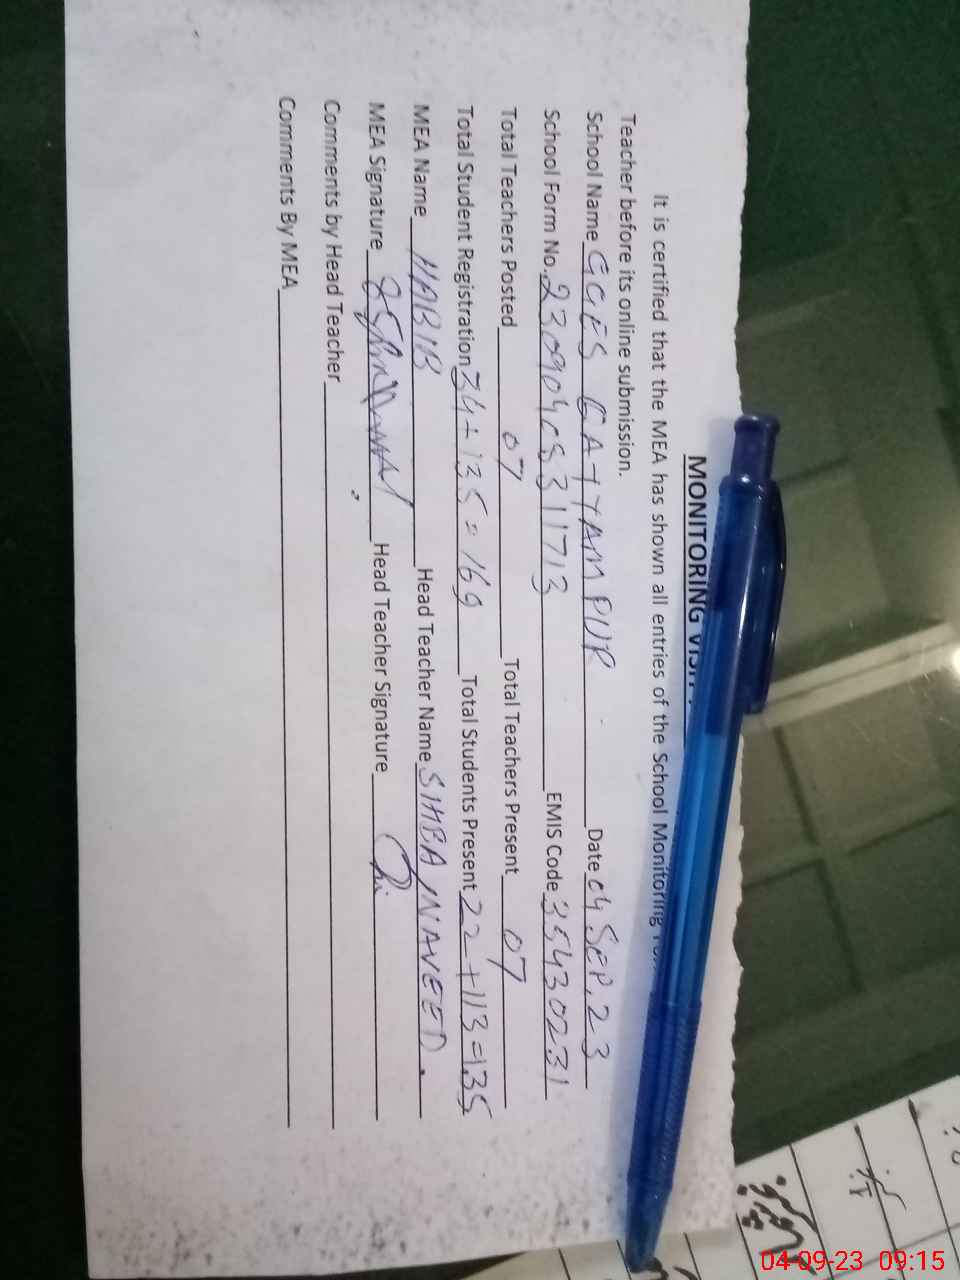 MONITORING VISIT
It is certified that the MEA has shown all entries of the School Monitoring
Teacher before its online submission.
School Name GGES GAYYAMPUR Date 04 SEP, 23
School Form No. 23090405311713 EMIS Code 35430231
Total Teachers Posted 07 Total Teachers Present 07
Total Student Registration 34+135=169 Total Students Present 22+113=135
MEA Name HABIB Head Teacher Name SIHBA NAVEED.
MEA Signature Head Teacher Signature
Comments by Head Teacher
Comments By MEA
04-09-23 09:15